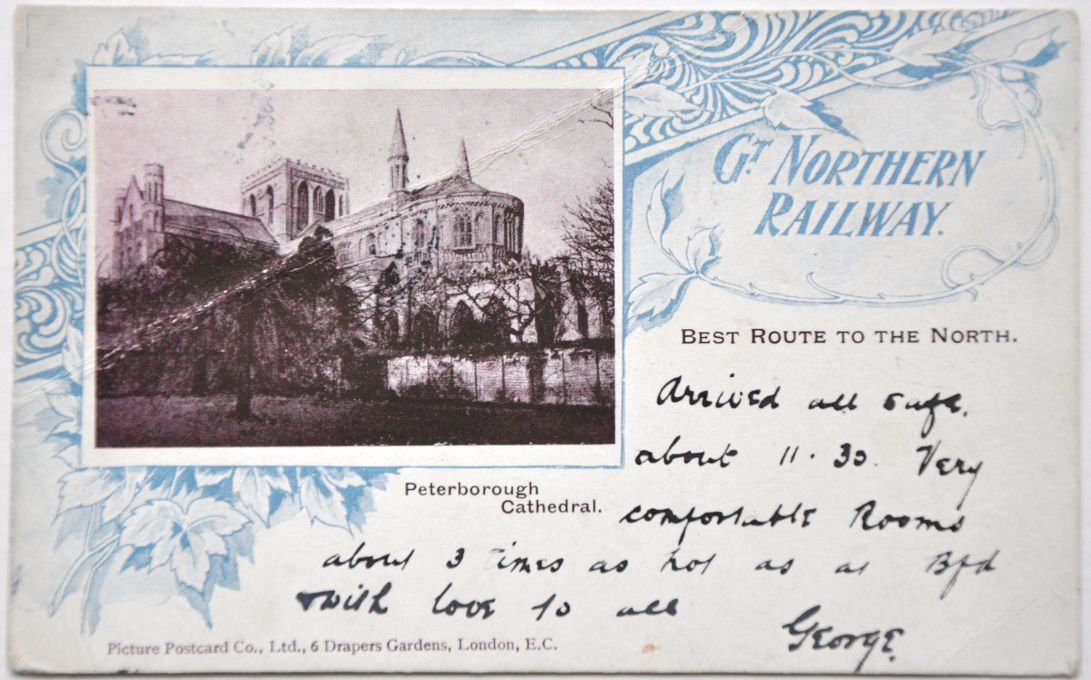 Gᵀ NORTHERN
RAILWAY.
BEST ROUTE TO THE NORTH.
Peterborough
Cathedral.
Arrived all safe.
about 11.30. Very
comfortable Rooms
about 3 times as hot as at Bfd
with love to all
George.
Picture Postcard Co., Ltd., 6 Drapers Gardens, London, E.C.